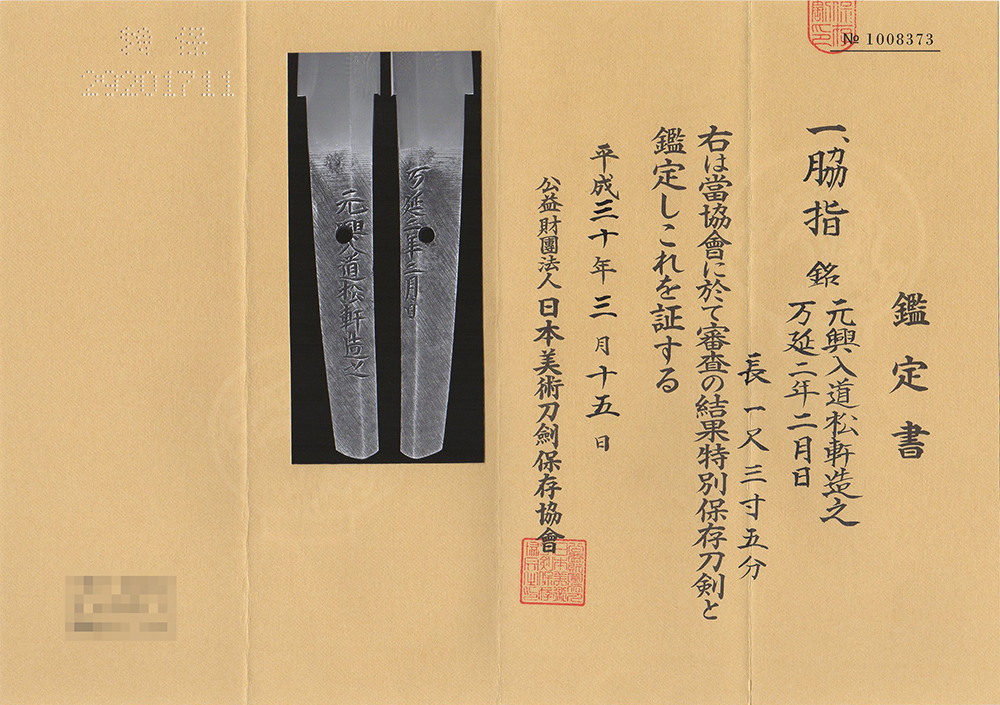 № 1008373
鑑定書
一、脇指 銘 元興入道松軒造之
万延二年二月日
長一尺三寸五分
右は當協會に於て審査の結果特別保存刀剣と
鑑定しこれを証する
平成三十年三月十五日
公益財團法人 日本美術刀劍保存協會
万延二年二月日
元興入道松軒造之
特保
29201711